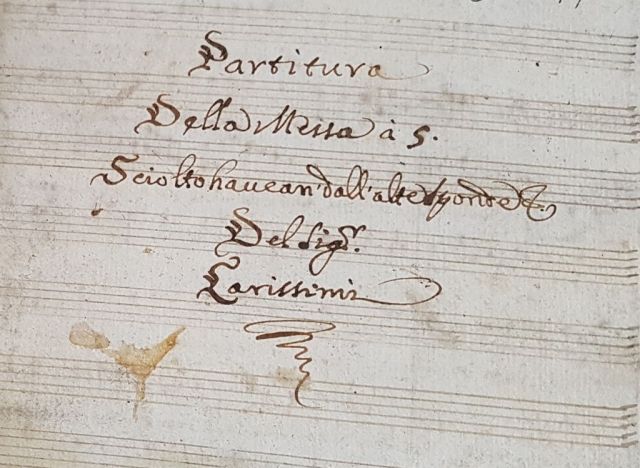 Partitura
Della Messa à 5.
Sciolto havean' dall'alte sponde &c.
Del Sigr.
Carissimi